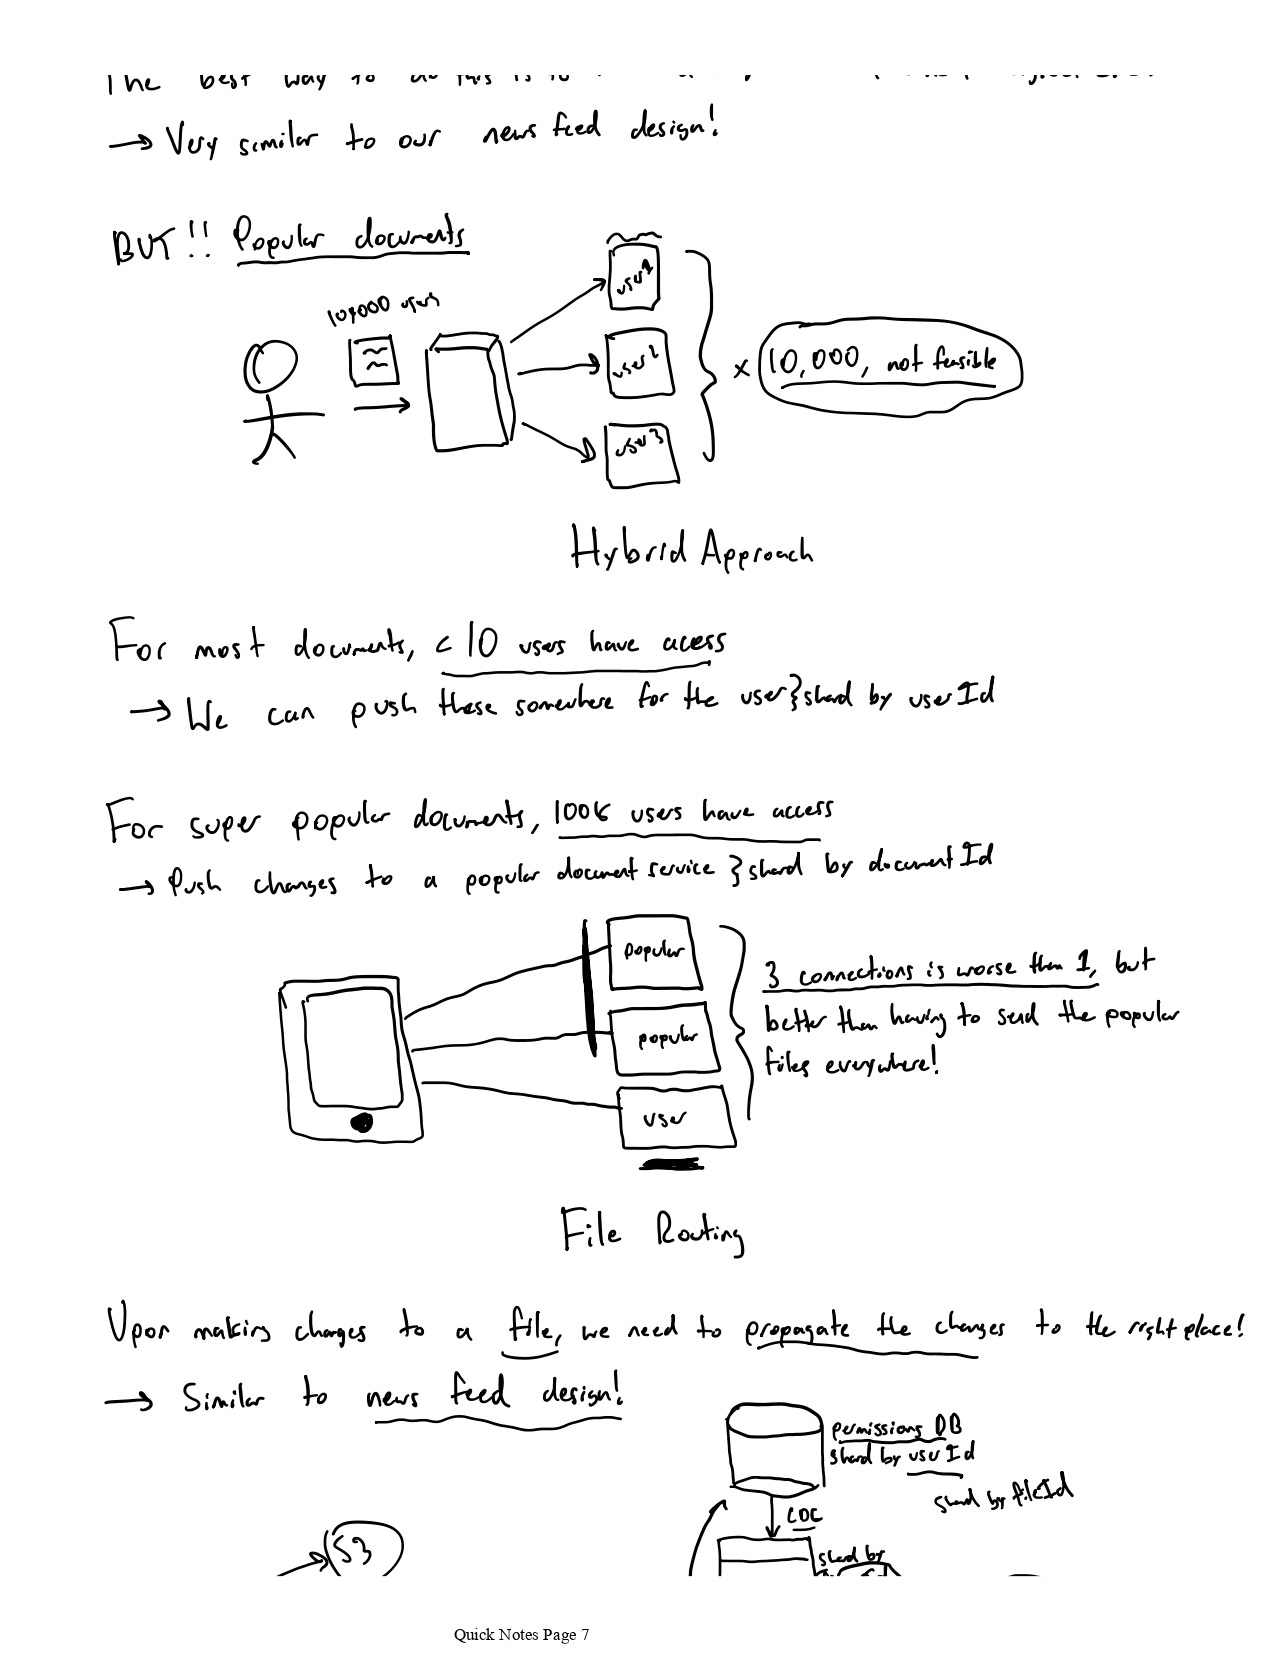 The best way to do this is to
→ Very similar to our news feed design!
BUT!! Popular documents
100,000 users
user 1
user 2
user 3
x 10,000, not feasible
Hybrid Approach
For most documents, < 10 users have acess
→ We can push these somewhere for the user } shard by userId
For super popular documents, 100k users have access
→ Push changes to a popular document service } shard by documentId
popular
popular
user
3 connections is worse than 1, but
better than having to send the popular
files everywhere!
File Routing
Upon making changes to a file, we need to propagate the changes to the right place!
→ Similar to news feed design!
permissions DB
shard by userId
shard by fileId
CDC
S3
shard by
Quick Notes Page 7